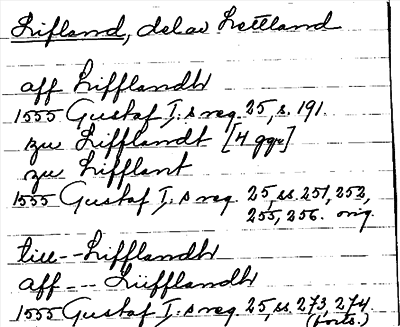 Lifland, del av Lettland
aff Lifflandh
1555 Gustaf I:s reg. 25, s. 191.
zu Lifflandt [4 ggr]
zu Lifflant
1555 Gustaf I:s reg. 25, ss. 251, 252,
255, 256. orig.
till -- Lifflandh
aff --- Lüfflandh
1555 Gustaf I:s reg. 25, ss. 273, 274.
(forts.)